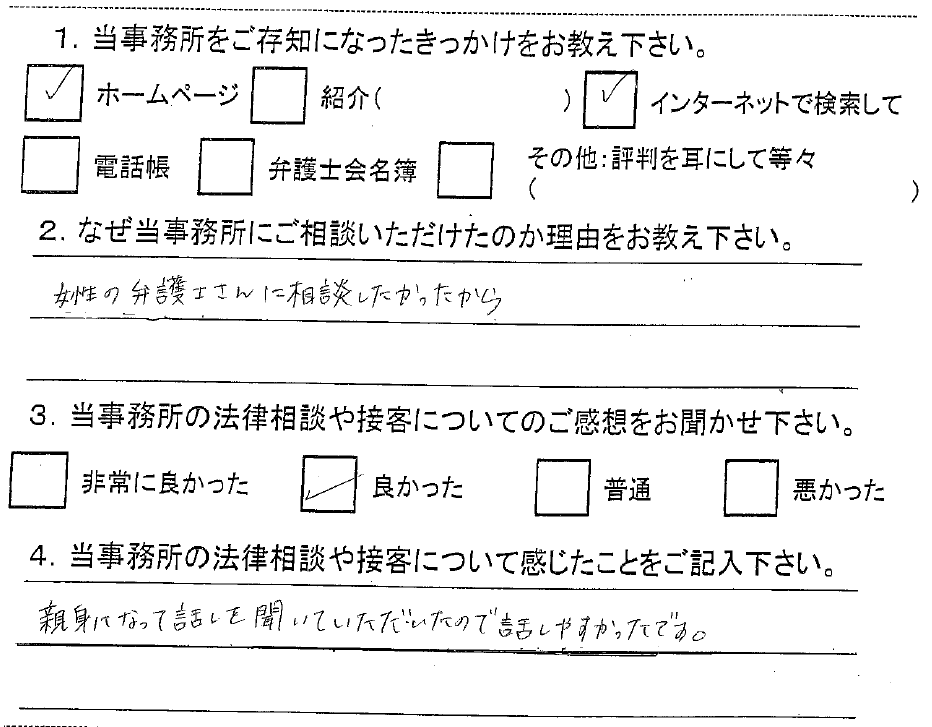 1. 当事務所をご存知になったきっかけをお教え下さい。
☑ ホームページ □ 紹介( ) ☑ インターネットで検索して
□ 電話帳 □ 弁護士会名簿 □ その他:評判を耳にして等々
( )
2. なぜ当事務所にご相談いただけたのか理由をお教え下さい。
女性の弁護士さんに相談したかったから
3. 当事務所の法律相談や接客についてのご感想をお聞かせ下さい。
□ 非常に良かった ☑ 良かった □ 普通 □ 悪かった
4. 当事務所の法律相談や接客について感じたことをご記入下さい。
親身になって話しを聞いていただいたので話しやすかったです。